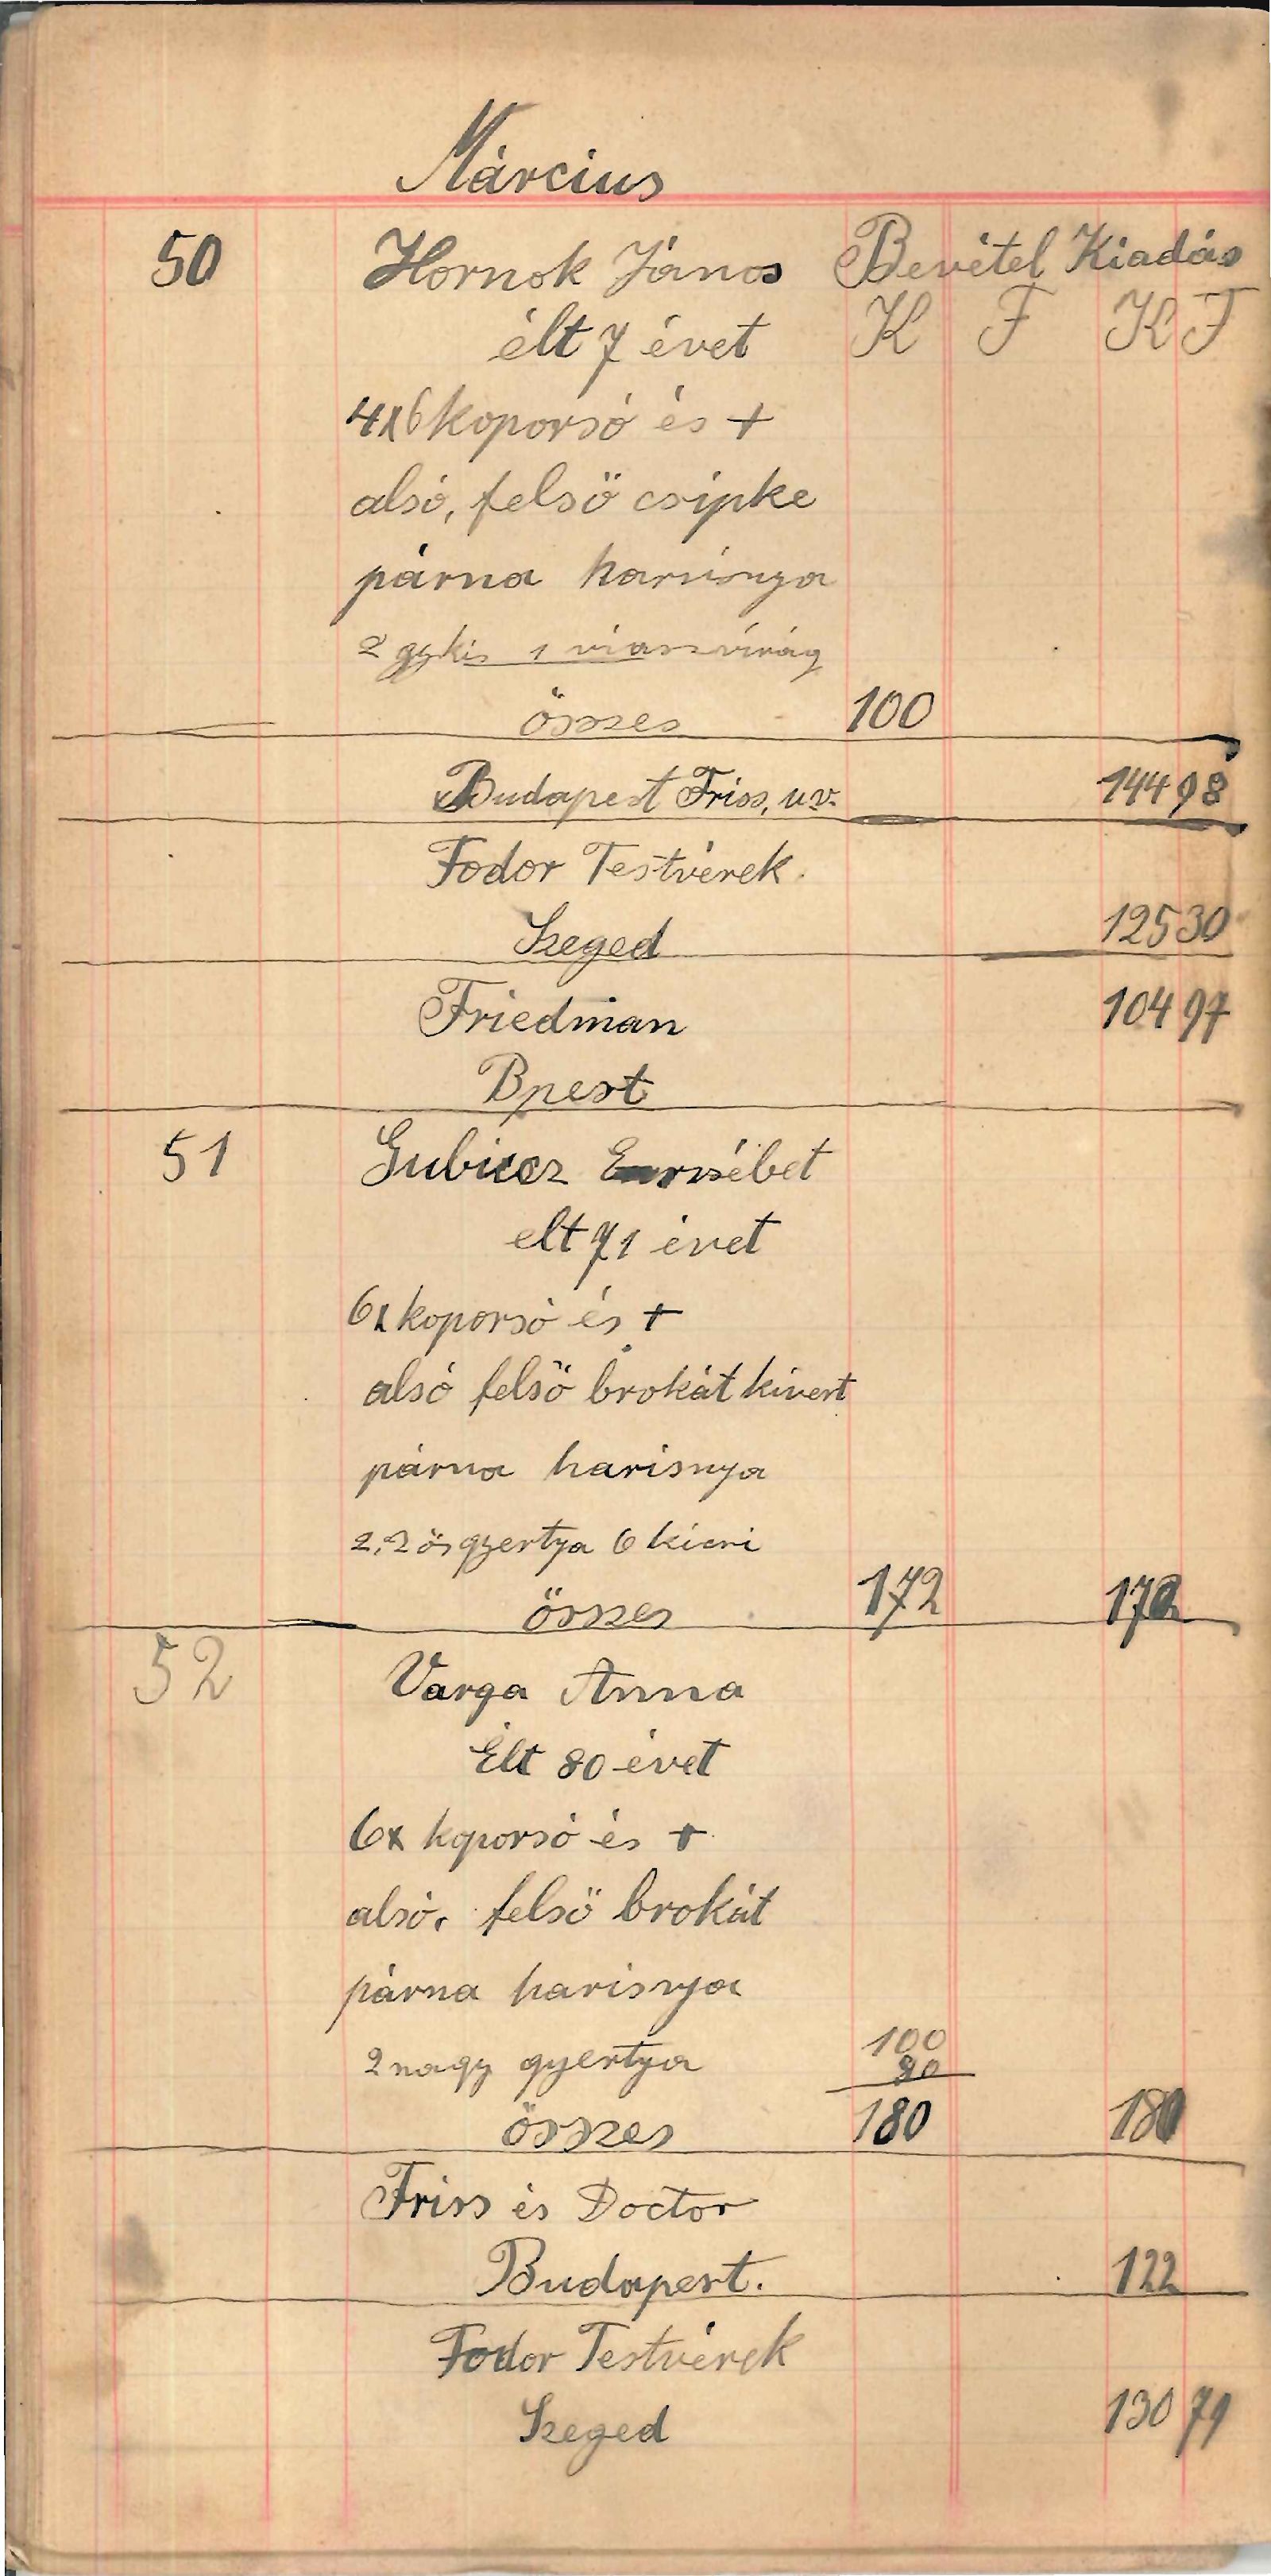 Március
50 Hornok János Bevétel Kiadás
élt 7 évet K F K F
4x6 koporsó és +
alsó, felső csipke
párna harisnya
2 gy kis 1 viaszvirág
összes 100
Budapest Friss, u.v. 144 98
Fodor Testvérek.
Szeged 125 30
Friedman 104 97
Bpest
51 Gubicz Erzsébet
elt 71 évet
6x koporsó és +
alsó felső brokát kivert
párna harisnya
2, 2 ös gyertya 6 kicsi
összes 172 172
52 Varga Anna
Élt 80 évet
6x koporsó és +
alsó, felső brokát
párna harisnya
100
2 nagy gyertya 80
összes 180 180
Friss és Doctor
Budapest. 122
Fodor Testvérek
Szeged 130 79